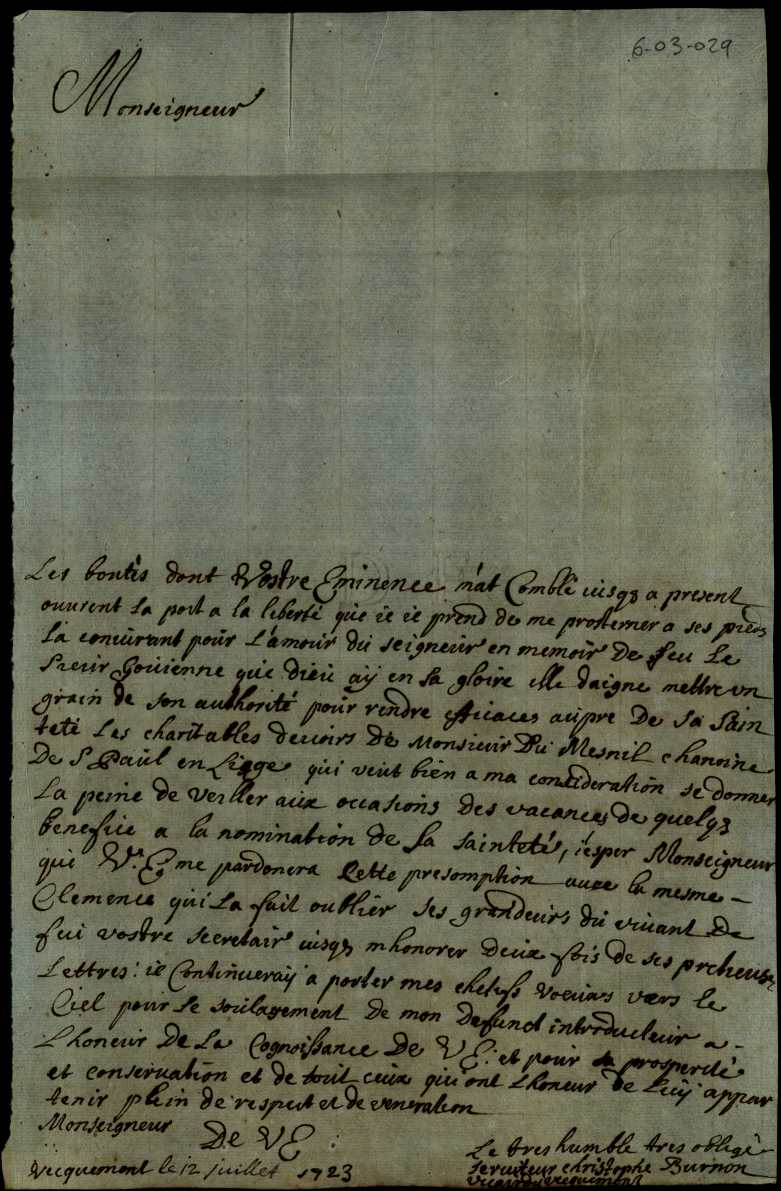 6-03-029
Monseigneur
Les bontés dont Vostre Eminence m'at Comblé iusqz a present
ouurent La port a la liberté que ie ie prend de me prosterner a ses pieds
La coniurant pour L'amour du seigneur en memoir De feu Le
Sieur Gouienne que dieu aÿ en sa gloire elle daigne mettre un
grain de son authorité pour rendre efficaces aupre De Sa Sain
teté Les charitables deuoirs De Monsieur Du Mesnil chanoine
De S Paul en Liege qui veut bien a ma consideration se donner
La peine de veiller aux occasions Des vacances de quelqz
benefice a la nomination de sa sainteté, i'esper Monseigneur
qui V. E. me pardonera Cette presomption auec la mesme
Clemence qui La fait oublier ses grandeurs du viuant De
feu vostre secretair iusqz m honorer Deux fois de ses
Lettres: ie Continueraÿ a porter mes chetifs voeux vers le
Ciel pour Le soulagement de mon Defunct introducteur a
Lhoneur De La Cognoissance De V E: et pour sa prosperité
et conseruation et de tout ceux qui ont Lhoneur De Luÿ appar
tenir plein de respect et de veneration
Monseigneur
De VE
Le tres humble tres obligé
seruiteur christophe Burnon
Vecquemont le 12 juillet 1723